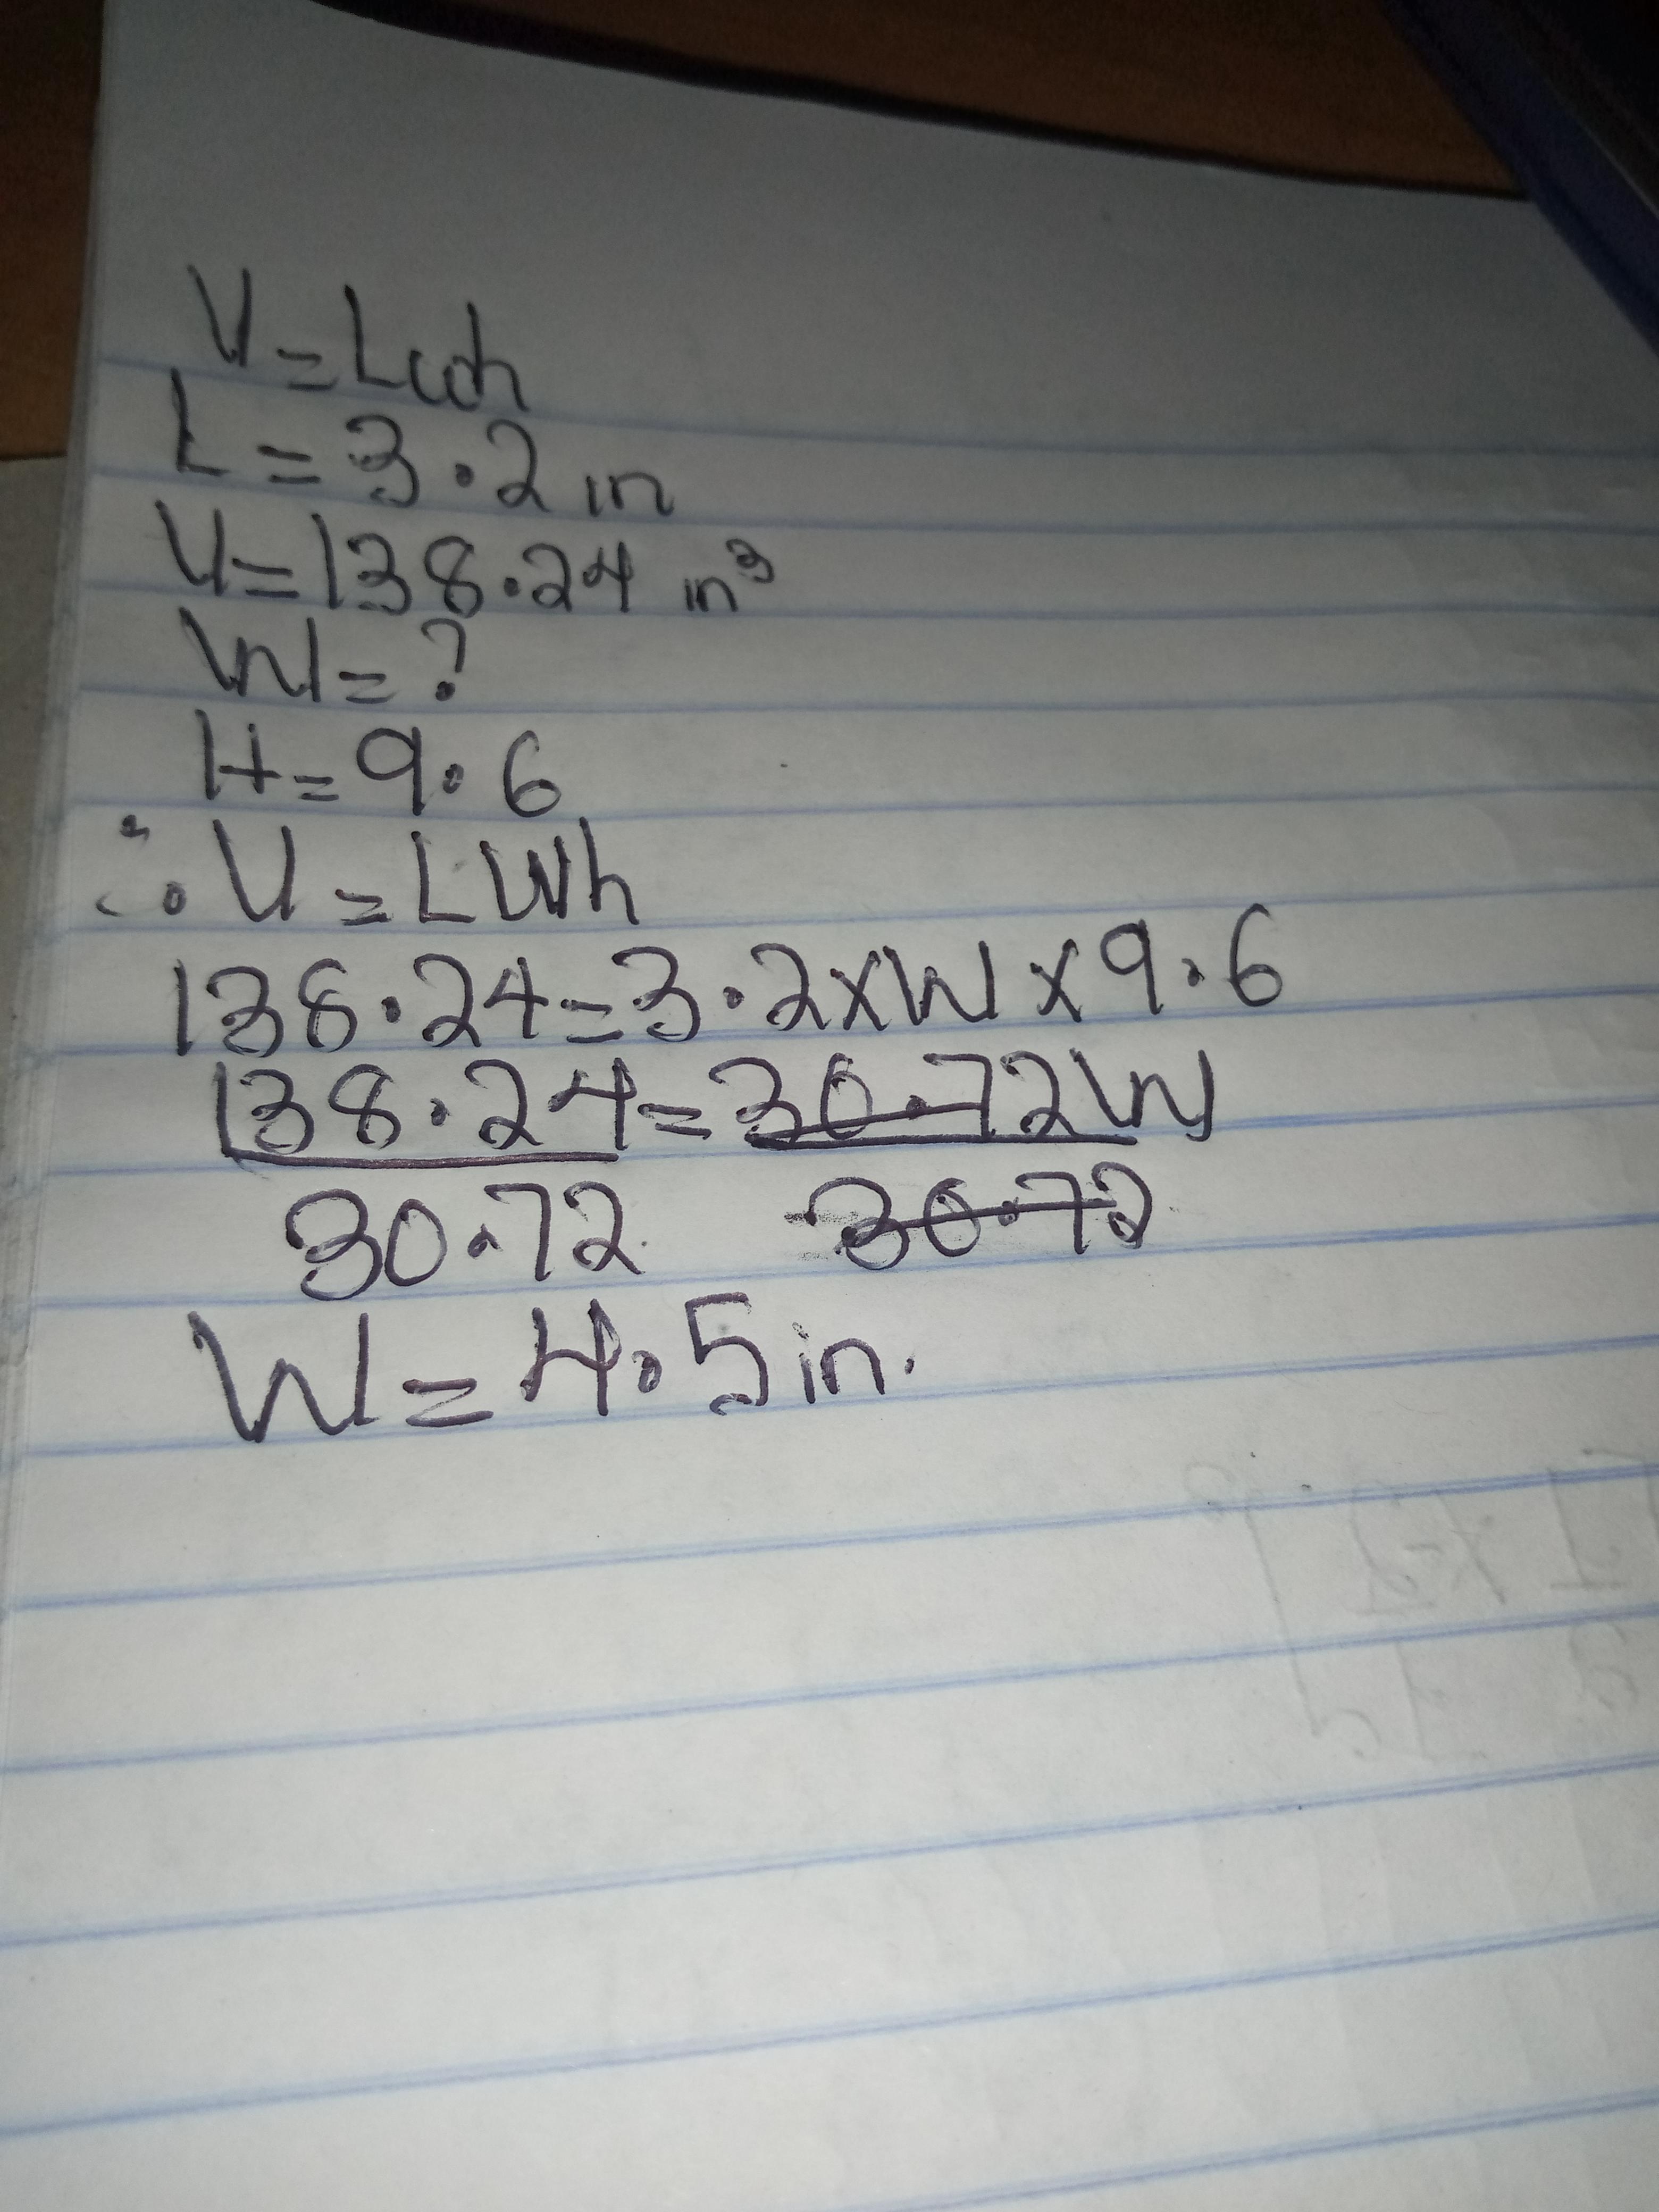 V=Lwh
L=3.2 in
V=138.24 in³
W=?
H=9.6
∴ V=LWh
138.24=3.2xWx9.6
138.24=30.72W
30.72 30.72
W=4.5in.